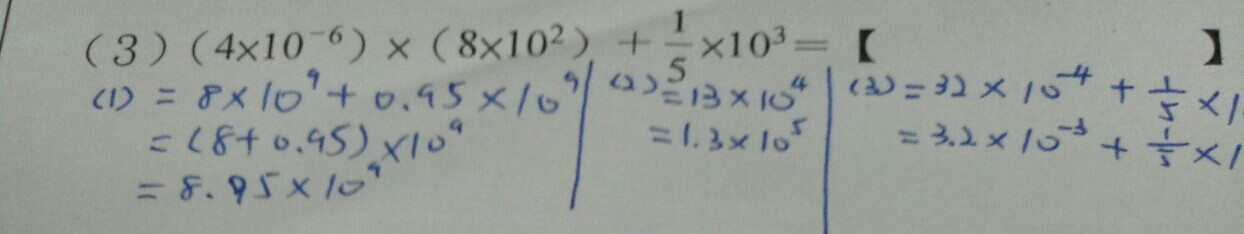 (3) (4×10⁻⁶) × (8×10²) + 1/5 ×10³ = 【 】
(1) = 8×10⁹ + 0.95 × 10⁹
= (8+0.95) ×10⁹
= 8.95 × 10⁹
(2) = 13 × 10⁴
= 1.3 × 10⁵
(3) = 32 × 10⁻⁴ + 1/5 ×1
= 3.2 × 10⁻³ + 1/5 ×1